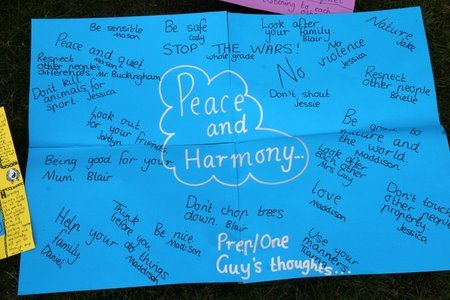 listening to each
Be sensible
Mason
Be safe
Cody
Look after
your family.
Blair
Nature
Jake
Peace and quiet
Mason
STOP THE WARS!
whole grade
No
violence
Jessica
Respect
other people's
differences. Mr Buckingham
Respect
other people
Brielle
Don't kill
animals for
sport. Jessica
Don't shout
Jessie
Peace
and
Harmony...
Look out
for your friends
Be good to
nature and
the world.
Maddison
Being good for your
Mum. Blair
Look after
each other
Mrs Gay
Love
Maddison
Don't touch
other people's
property.
Jessica
Help your
family
Daniel
Think
before you
do things
Maddison
Be nice.
Madison
Don't chop trees
down. Blair
Prep/One
Guy's thoughts...
Use your
manners